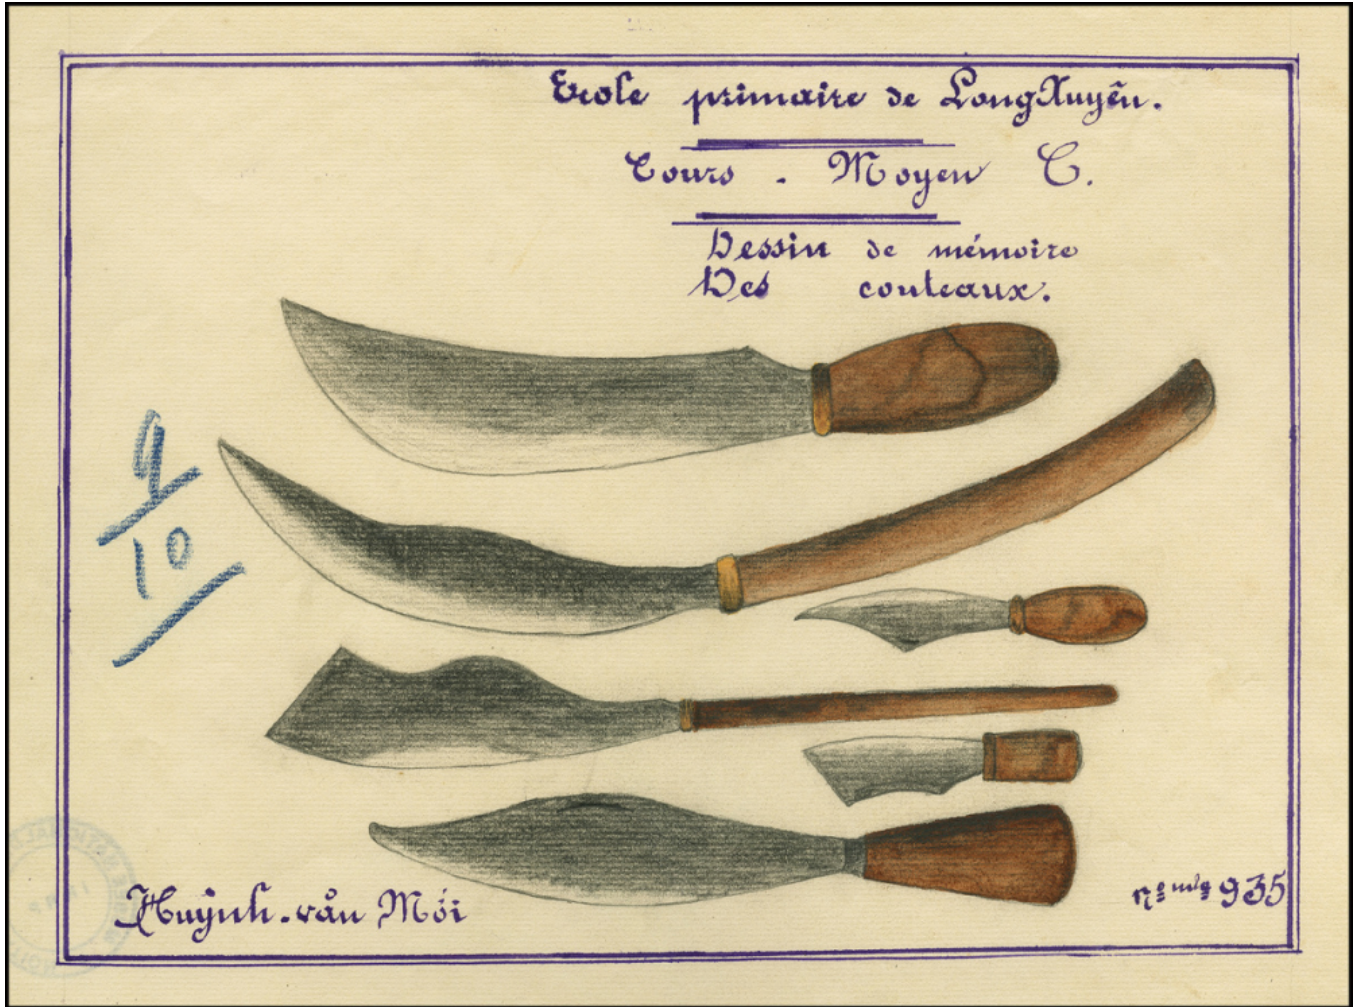 Ecole primaire de LongXuyên.
Cours - Moyen C.
Dessin de mémoire
Des couteaux.
9
10
Huỳnh-văn Mới
nº mle 935